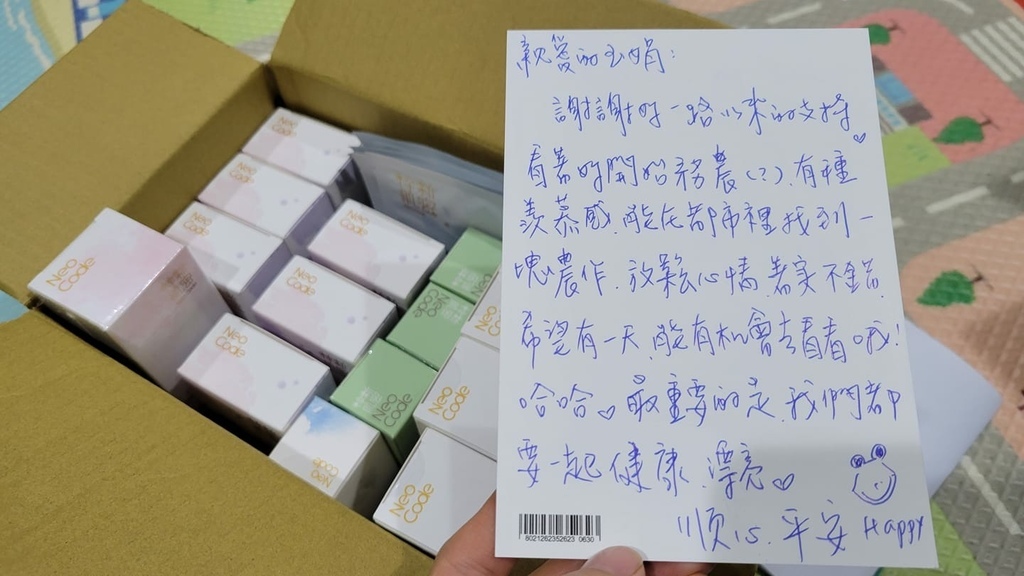 親愛的玉娟：
謝謝妳一路以來的支持♡
看著妳開始務農(?)、有種
羨慕感、能在都市裡找到一
塊農作、放鬆心情、著實不錯、
希望有一天、能有机會去看看哦！
哈哈♡最重要的是、我們都
要一起健康、漂亮♡
順心、平安 Happy
8021262352623 0630
Neo Code
Neo Code
Neo Code
Neo Code
Neo Code
Neo Code
Neo Code
Neo Code
Neo Code
Neo Code
Neo Code
Neo Code